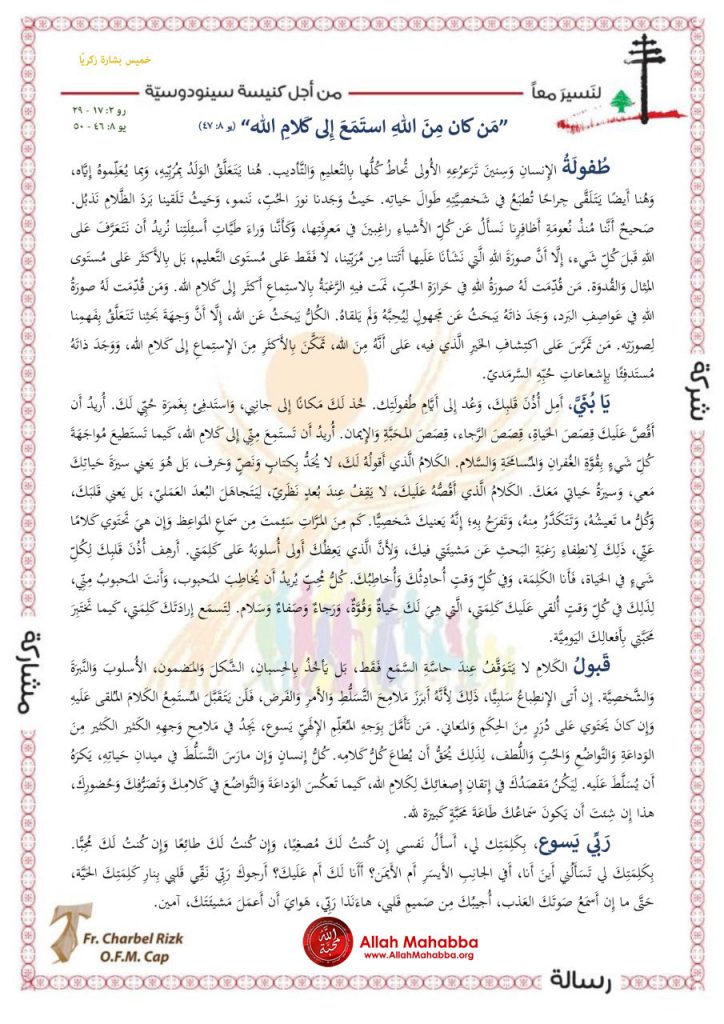 خميس بشارة زكريّا
لنَسيرَ معاً
من أجل كنيسة سينودوسيّة
رو ٣: ١٧ - ٢٩
يو ٨: ٤٦ - ٥٠
”مَن كان مِنَ اللهِ استَمَعَ إلى كَلامِ الله“ (يو ٨: ٤٧)
طُفولَةُ الإنسانِ وَسِنينَ تَرَعرُعِهِ الأُولى تُحاطُ كُلُّها بِالتَّعليمِ وَالتَّأديب. هُنا يَتَعَلَّقُ الوَلَدُ بِمُرَبّيهِ، وَبِما يُعَلِّموهُ إيَّاه،
وَهُنا أيضًا يَتَلَقَّى جِراحًا تُطبَعُ في شَخصِيَّتِهِ طَوالَ حَياتِه. حَيثُ وَجَدنا نورَ الحُبِّ، نَنمو، وَحَيثُ تَلَقينا بَردَ الظَّلامِ نَذبُل.
صَحيحٌ أنَّنا مُنذُ نُعومَةِ أظافِرِنا نَسألُ عَن كُلِّ الأشياءِ راغِبينَ في مَعرِفَتِها، وَكَأنَّنا وَراءَ طَيَّاتِ أسئِلَتِنا نُريدُ أن نَتَعَرَّفَ عَلى
اللهِ قَبلَ كُلِّ شَيء، إلَّا أنَّ صورَةَ اللهِ الَّتي نَشَأنا عَلَيها أتَتنا مِن مُرَبّينا، لا فَقَط عَلى مُستَوى التَّعليم، بَل بِالأكثَرِ عَلى مُستَوى
المِثالِ وَالقُدوَة. مَن قُدِّمَت لَهُ صورَةُ اللهِ في حَرارَةِ الحُبِّ، نَمَت فيهِ الرَّغبَةُ بِالاستِماعِ أكثَر إلى كَلامِ الله. وَمَن قُدِّمَت لَهُ صورَةُ
اللهِ في عَواصِفِ البَرد، وَجَدَ ذاتَهُ يَبحَثُ عَن مَجهولٍ لِيُحِبَّهُ وَلَم يَلقاهُ. الكُلُّ يَبحَثُ عَنِ الله، إلَّا أنَّ وُجهَةَ بَحثِنا تَتَعَلَّقُ بِفَهمِنا
لِصورَتِه. مَن تَمَرَّسَ عَلى اكتِشافِ الخَيرِ الَّذي فيه، عَلى أنَّهُ مِنَ الله، تَمَكَّنَ بِالأكثَرِ مِنَ الإستِماعِ إلى كَلامِ الله، وَوَجَدَ ذاتَهُ
مُستَدفِئًا بِإشعاعاتِ حُبِّهِ السَّرمَديّ.
يَا بُنَيَّ، أمِل أُذُنَ قَلبِكَ، وَعُد إلى أيَّامِ طُفولَتِك. خُذ لَكَ مَكانًا إلى جانِبي، وَاستَدفِئ بِغَمرَةِ حُبّي لَكَ. أُريدُ أن
أقُصَّ عَلَيكَ قِصَصَ الحَياةِ، قِصَصَ الرَّجاء، قِصَصَ المَحَبَّةِ وَالإيمان. أُريدُ أن تَستَمِعَ مِنّي إلى كَلامِ الله، كَيما تَستَطيعَ مُواجَهَةَ
كُلِّ شَيءٍ بِقُوَّةِ الغُفرانِ وَالمُسامَحَةِ وَالسَّلام. الكَلامُ الَّذي أقولُهُ لَكَ، لا يُحَدُّ بِكِتابٍ وَنَصٍّ وَحَرف، بَل هُوَ يَعني سيرَةَ حَياتِكَ
مَعي، وَسيرَةُ حَياتي مَعَكَ. الكَلامُ الَّذي أقُصُّهُ عَلَيكَ، لا يَقِفُ عِندَ بُعدٍ نَظَريّ، لِيَتَجاهَلَ البُعدَ العَمَليّ، بَل يَعني قَلبَكَ،
وَكُلَّ ما تَعيشُهُ، وَتَتَكَدَّرُ مِنهُ، وَتَفرَحُ بِهِ؛ إنَّهُ يَعنيكَ شَخصِيًّا. كَم مِنَ المَرَّاتِ سَئِمتَ مِن سَماعِ المَواعِظِ وَإن هِيَ تَحتَوي كَلامًا
عَنّي، ذَلِكَ لِانطِفاءِ رَغبَةِ البَحثِ عَن مَشيئَتي فيكَ، وَلِأنَّ الَّذي يَعِظُكَ أولى أُسلوبَهُ عَلى كَلِمَتي. أرهِف أُذُنَ قَلبِكَ لِكُلِّ
شَيءٍ في الحَياة، فَأنا الكَلِمَة، وَفي كُلِّ وَقتٍ أُحادِثُكَ وَأُخاطِبُكَ. كُلُّ مُحِبٍّ يُريدُ أن يُخاطِبَ المَحبوب، وَأنتَ المَحبوبُ مِنّي،
لِذَلِكَ في كُلِّ وَقتٍ أُلقي عَلَيكَ كَلِمَتي، الَّتي هِيَ لَكَ حَياةٌ وَقُوَّةٌ، وَرَجاءٌ وَصَفاءٌ وَسَلام. لِتَسمَع إرادَتُكَ كَلِمَتي، كَيما تَختَبِرَ
مَحَبَّتي بِأفعالِكَ اليَومِيَّة.
قَبولُ الكَلامِ لا يَتَوَقَّفُ عِندَ حاسَّةِ السَّمَعِ فَقَط، بَل يَأخُذُ بِالحِسبانِ، الشَّكلَ وَالمَضمونَ، الأُسلوبَ وَالنَّبرَةَ
وَالشَّخصِيَّة. إن أتى الإنطِباعُ سَلبِيًّا، ذَلِكَ لِأنَّهُ أبرَزَ مَلامِحَ التَّسَلُّطِ وَالأمرِ وَالفَرضِ، فَلَن يَتَقَبَّلَ المُستَمِعُ الكَلامَ المُلقى عَلَيهِ
وَإن كانَ يَحتَوي عَلى دُرَرٍ مِنَ الحِكَمِ وَالمَعاني. مَن تَأمَّلَ بِوَجهِ المُعَلِّمِ الإلَهيّ يَسوع، يَجِدُ في مَلامِحِ وَجهِهِ الكَثيرَ الكَثيرَ مِنَ
الوَداعَةِ وَالتَّواضُعِ وَالحُبِّ وَاللُّطف، لِذَلِكَ يُحَقُّ أن يُطاعَ كُلُّ كَلامِه. كُلُّ إنسانٍ وَإن مارَسَ التَّسَلُّطَ في مَيدانِ حَياتِهِ، يَكرَهُ
أن يُسَلَّطَ عَلَيه. لِيَكُنُ مَقصَدُكَ في إتقانِ إصغائِكَ لِكَلامِ الله، كَيما تَعكُسَ الوَداعَةَ وَالتَّواضُعَ في كَلامِكَ وَتَصَرُّفِكَ وَحُضورِكَ،
هذا إن شِئتَ أن يَكونَ سَماعُكَ طَاعَةَ مَحَبَّةٍ كَبيرَة لله.
رَبّي يَسوع، بِكَلِمَتِكَ لي، أسألُ نَفسي إن كُنتُ لَكَ مُصغِيًا، وَإن كُنتُ لَكَ طائِعًا وَإن كُنتُ لَكَ مُحِبًّا.
بِكَلِمَتِكَ لي تَسألُني أينَ أنا، أفي الجانِبِ الأيسَرِ أم الأيمَن؟ أأنا لَكَ أم عَلَيكَ؟ أرجوكَ رَبّي نَقّي قَلبي بِنارِ كَلِمَتِكَ الحَيَّة،
حَتَّى ما إن أسمَعُ صَوتَكَ العَذب، أُجيبُكَ مِن صَميمِ قَلبي، هاءَنَذا رَبّي، هَوايَ أن أعمَلَ مَشيئَتَكَ، آمين.
شركة
مشاركة
رسالة
Fr. Charbel Rizk
O.F.M. Cap
الله محبة
Allah Mahabba
www.AllahMahabba.org